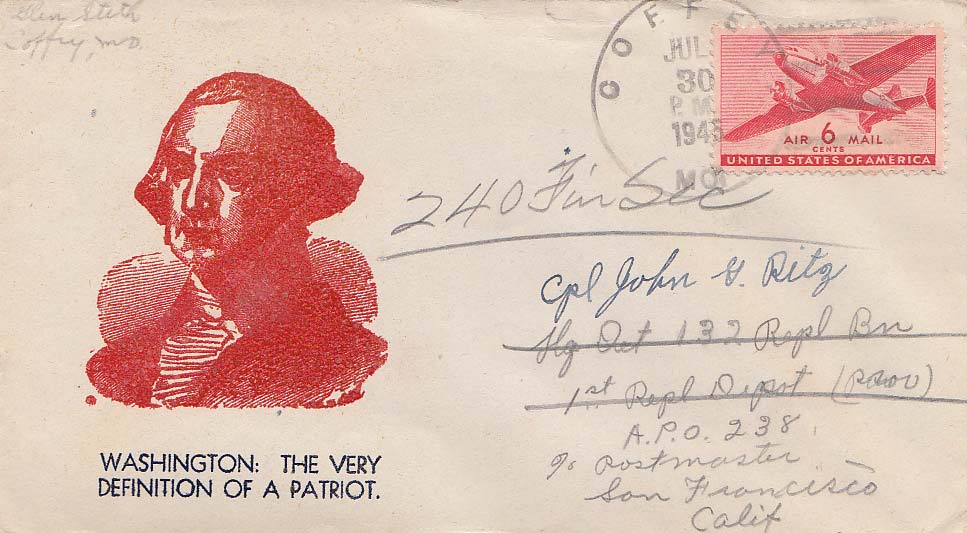 Glen Steth
Coffey, Mo.
COFFEY
JUL
30
P.M.
1945
MO.
AIR 6 MAIL
CENTS
UNITED STATES OF AMERICA
240 Fin Sec
Cpl John G. Ritz
Hq Det 132 Repl Bn
1st Repl Depot (Prov)
A.P.O. 238
c/o Postmaster
San Francisco
Calif
WASHINGTON: THE VERY
DEFINITION OF A PATRIOT.